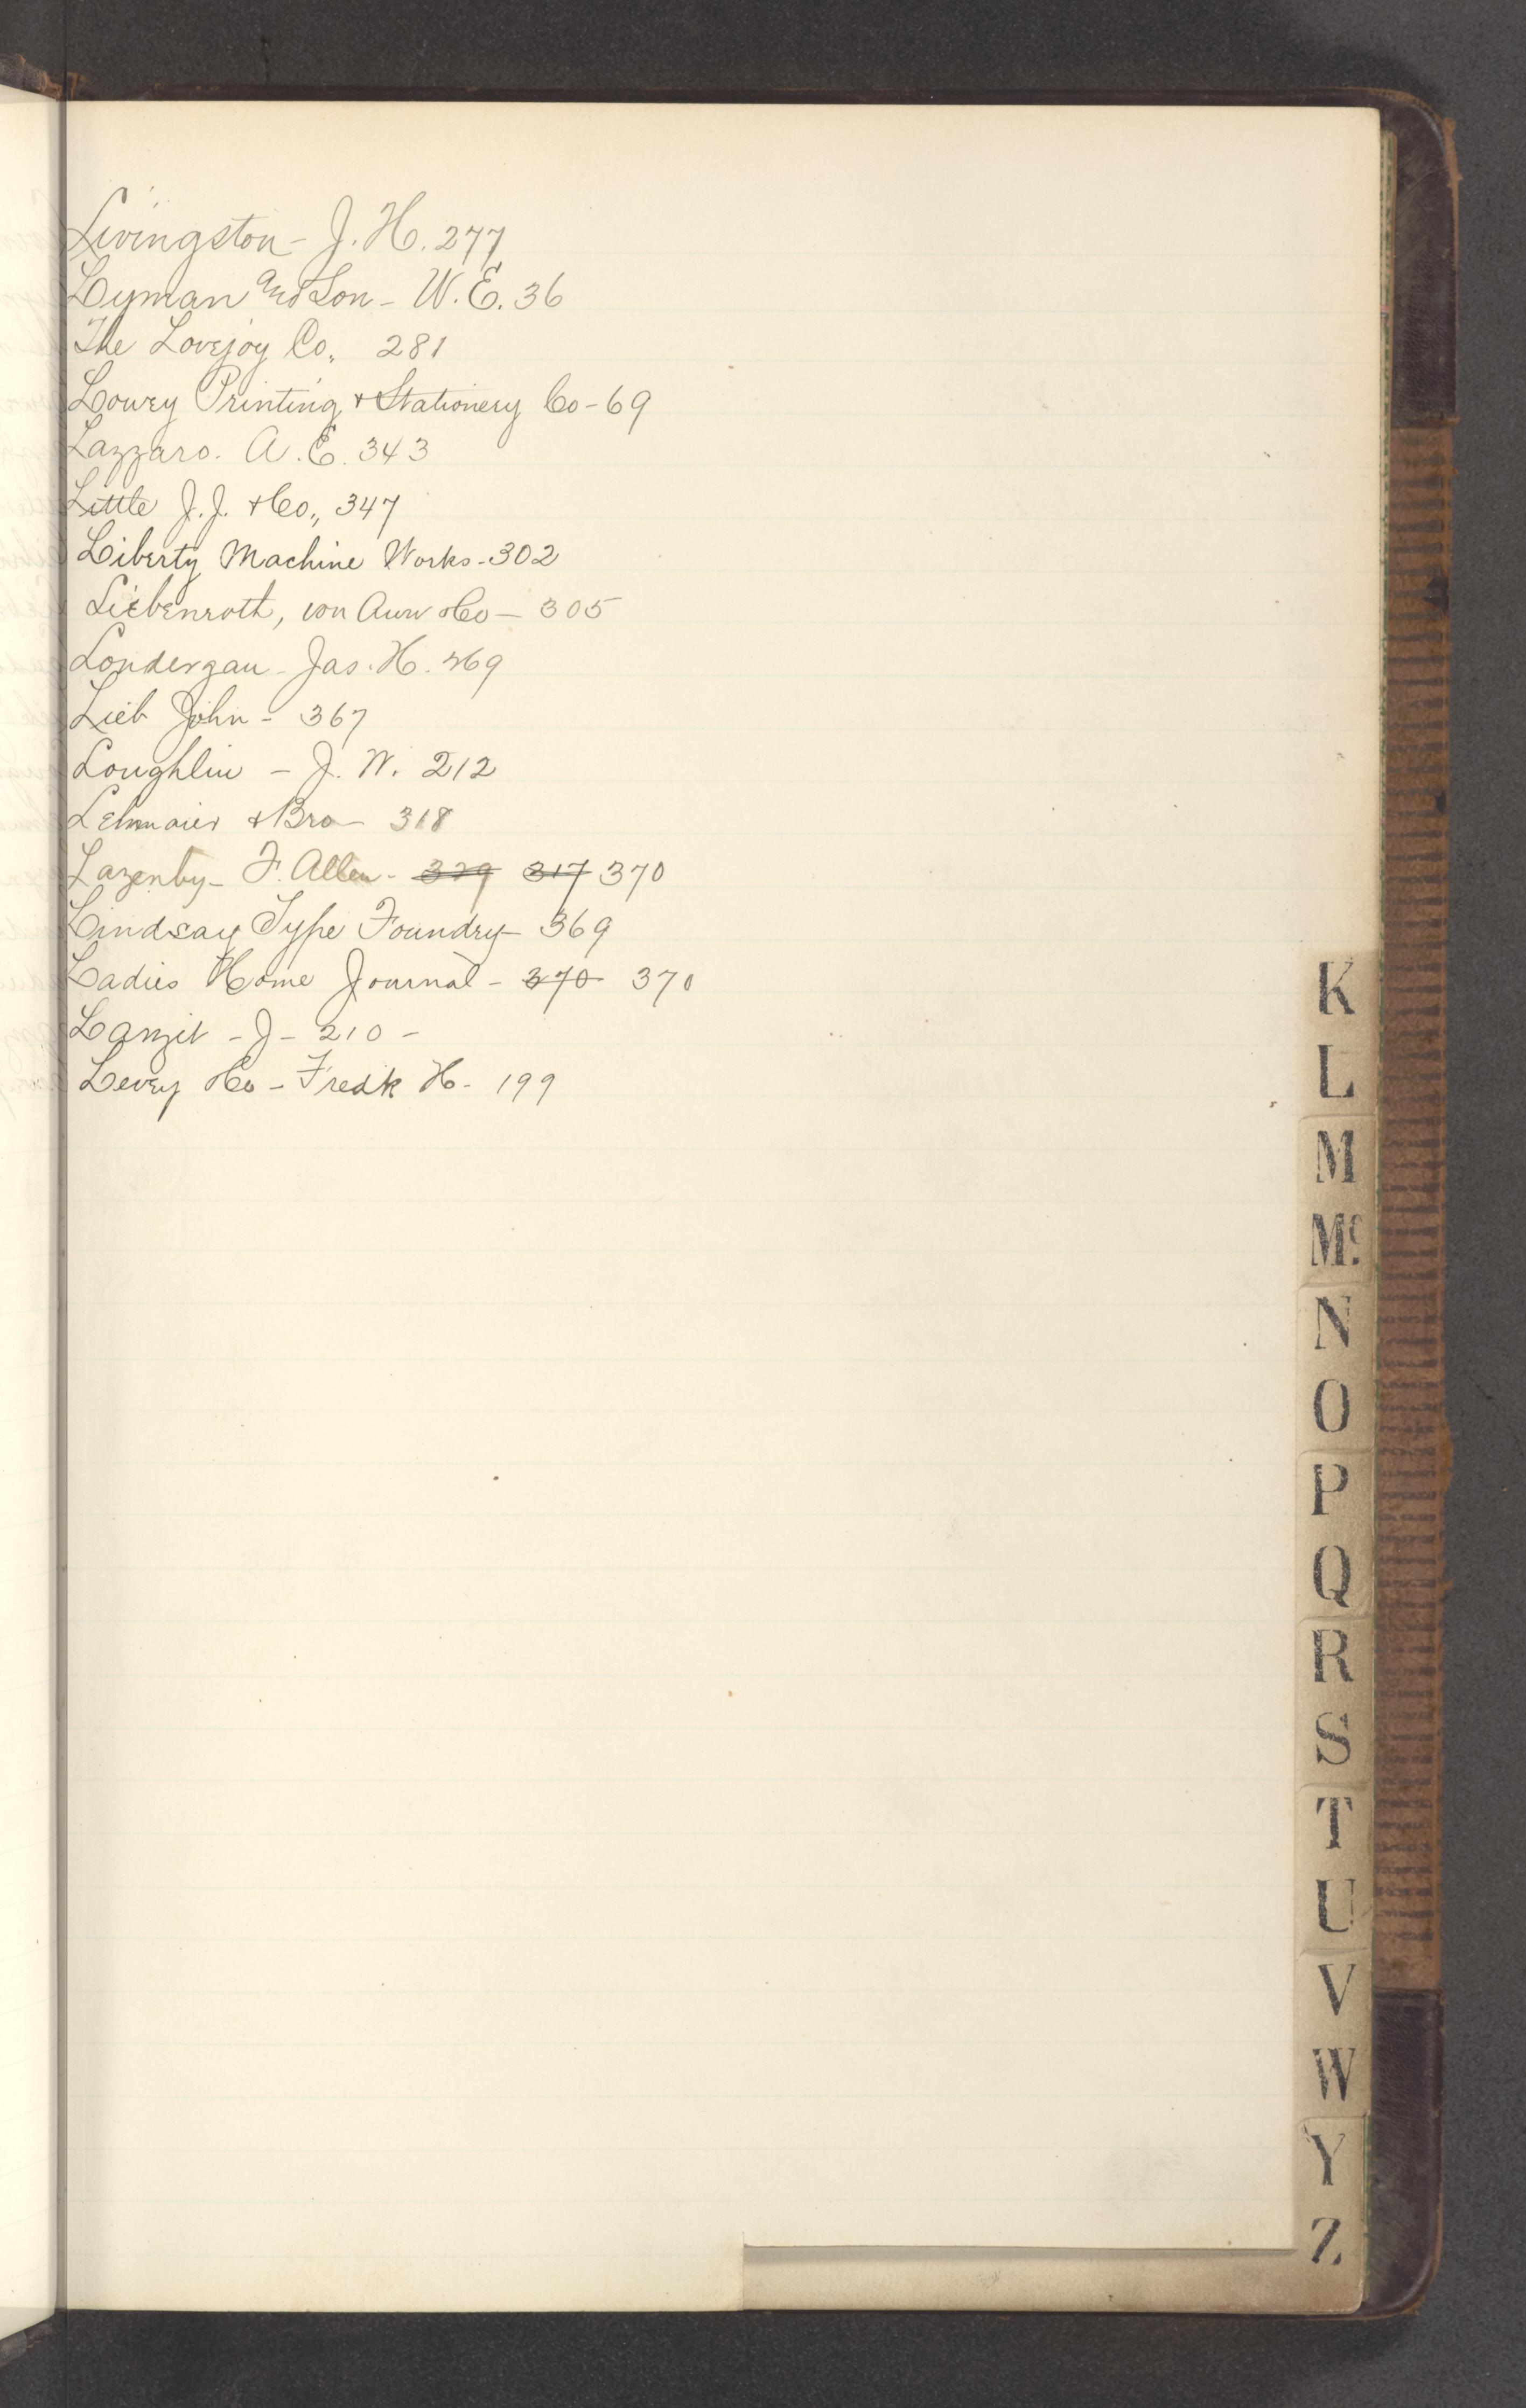 Livingston - J. H. 277
Lyman and Son - W. E. 36
The Lovejoy Co. 281
Lowey Printing & Stationery Co - 69
Lazzaro. A. E. 343
Little J. J. & Co., 347
Liberty Machine Works - 302
Liebenroth, von Auw & Co - 305
Londergan - Jas. H. 269
Lieb John - 367
Loughlin - J. W. 212
Lehmaier & Bro - 318
Lazenby - F. Allen - 329 317 370
Lindsay Type Foundry - 369
Ladies Home Journal - 370 370
Lanzit - J - 210 -
Levey & Co - Fredk H - 199
K
L
M
Mc
N
O
P
Q
R
S
T
U
V
W
Y
Z